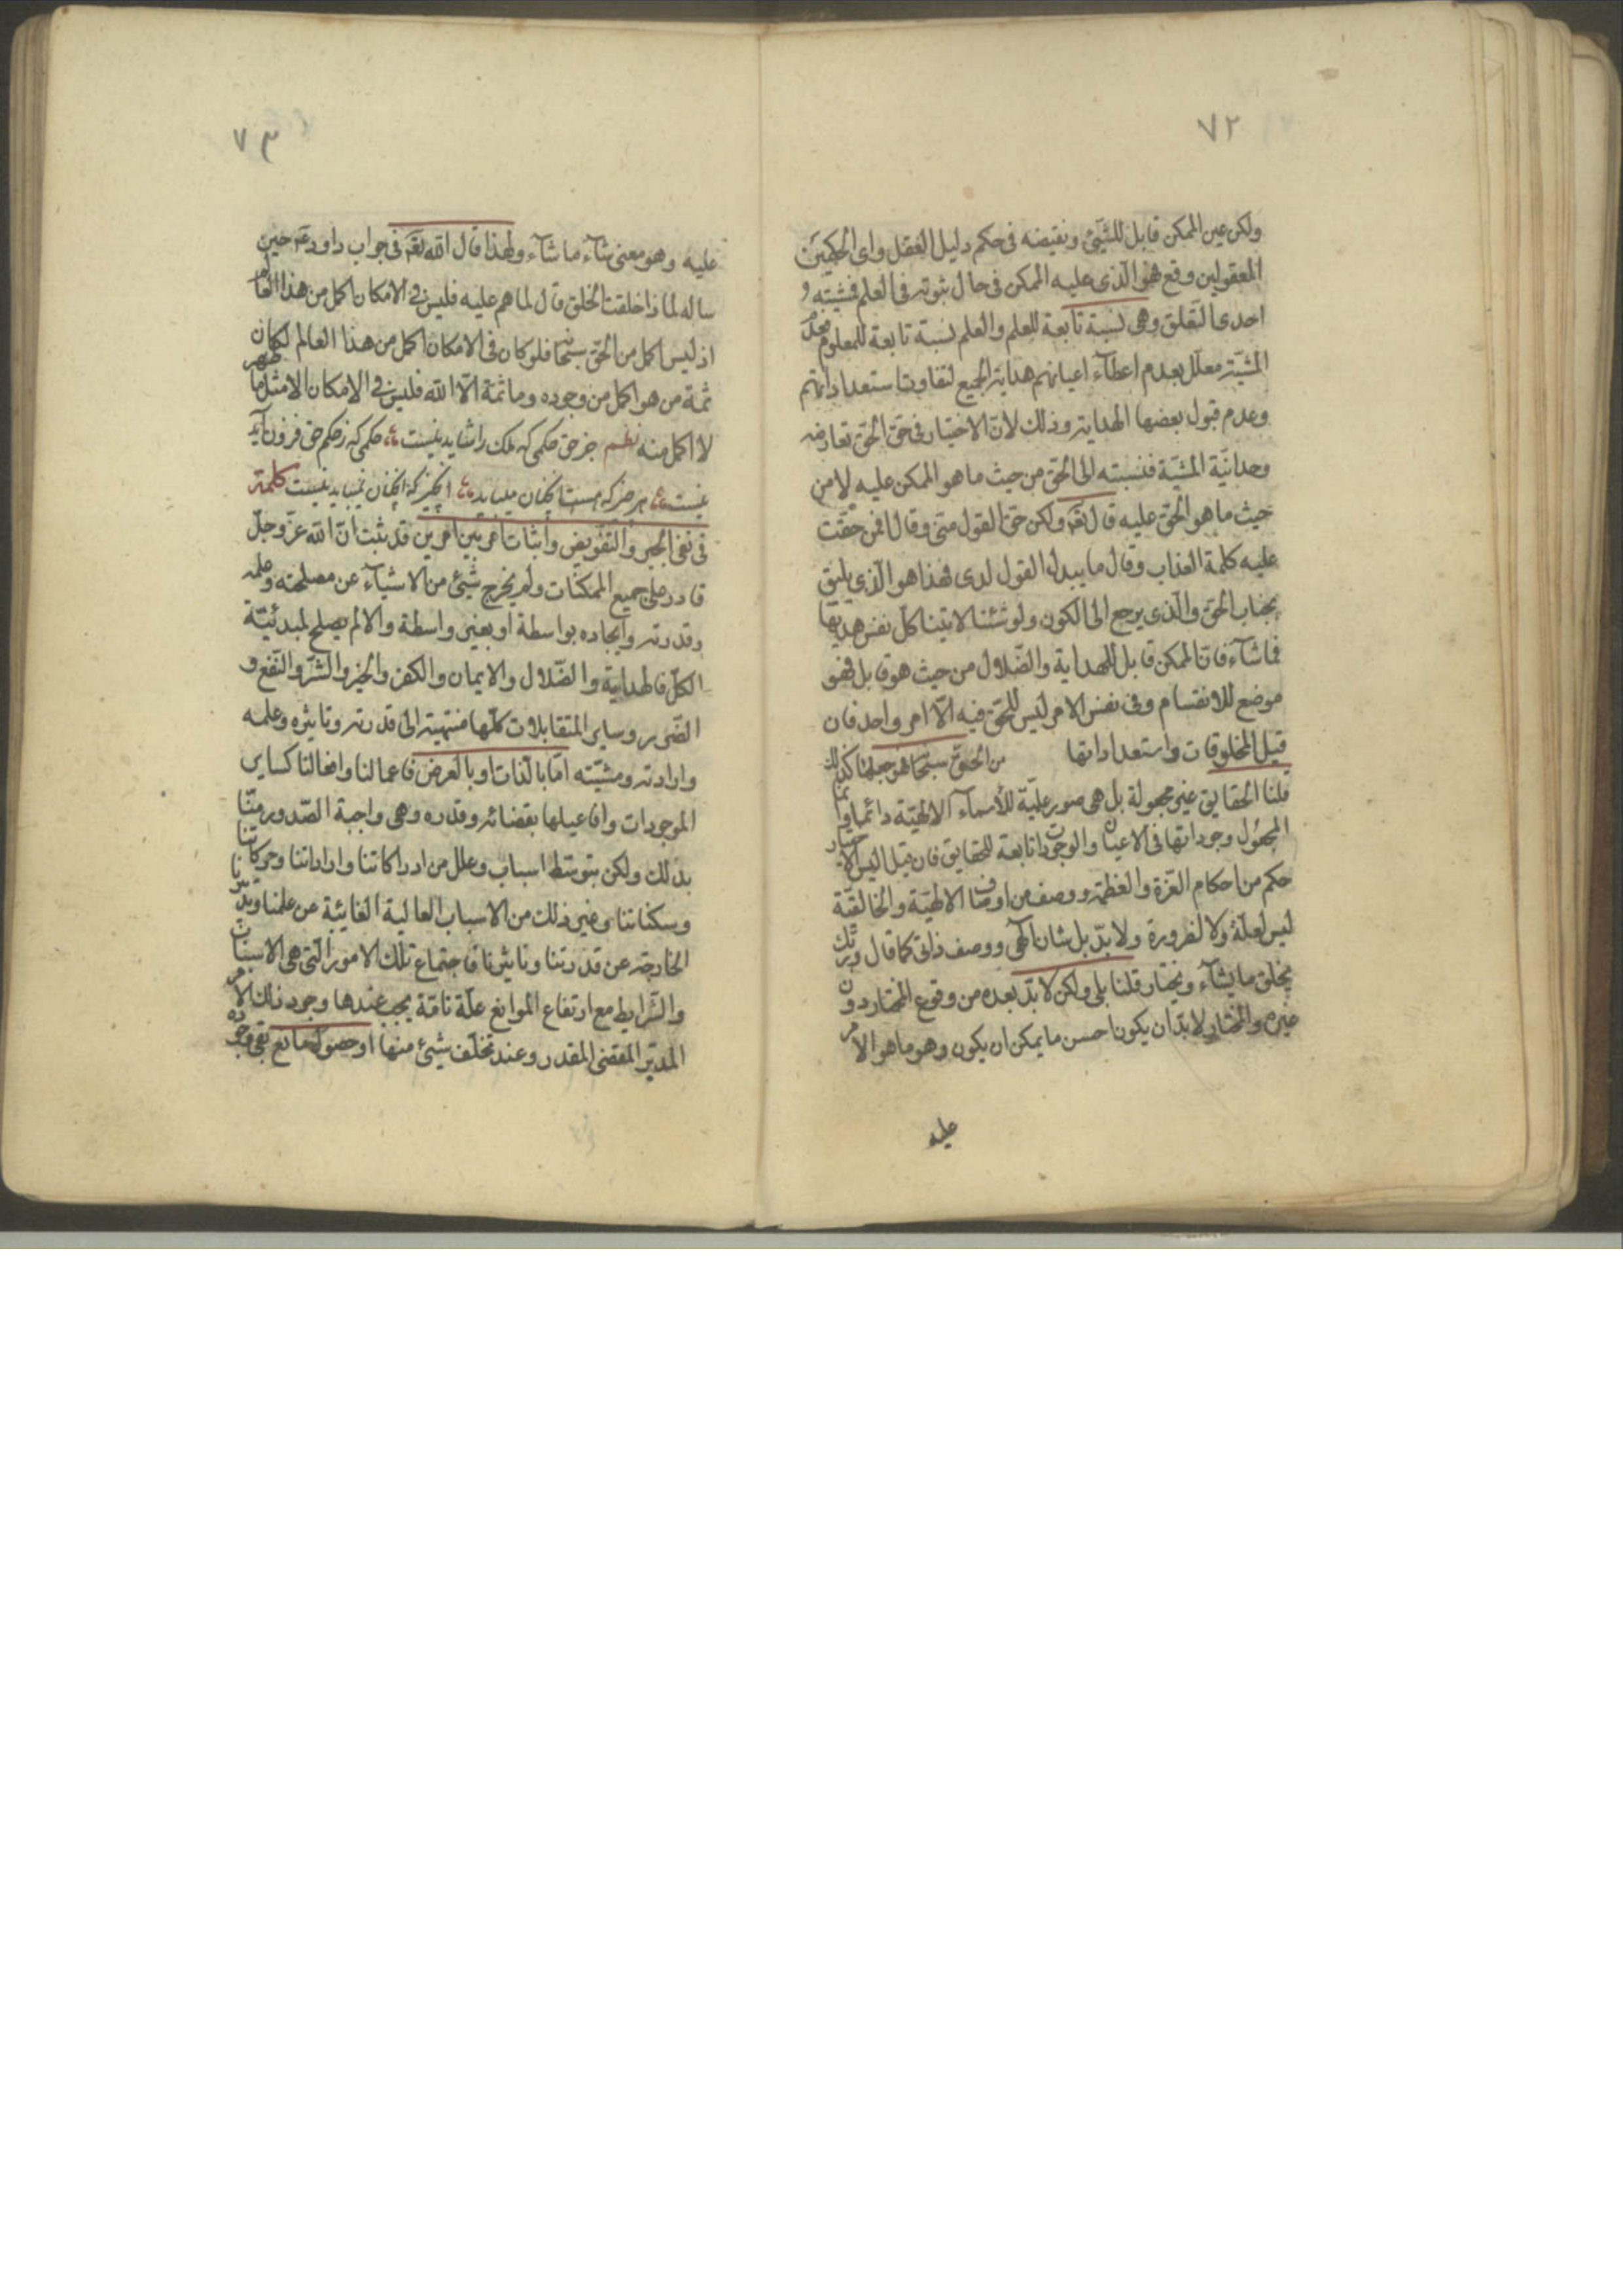 ٧٢
ولكن عين الممكن قابل للشيئ ونقيضه فى حكم دليل العقل واى الحكمين
المعقولين وقع فهو الذى عليه الممكن فى حال ثبوته فى العلم فمشيته و
احدى التعلق وهى نسبة تابعة للعلم والعلم نسبة تابعة للمعلوم
المشيّة معلّل بعدم اعطآء اعيانهم هداية الجميع لتفاوت استعداداتهم
وعدم قبول بعضها الهداية وذلك لانّ الاختيار فى حق الحقّ تعارضه
وحدانيّة المشيّة فنسبته الى الحقّ من حيث ما هو الممكن عليه لا من
حيث ما هو الحق عليه قال تعه ولكن حق القول منى وقال افمن حقّت
عليه كلمة العذاب وقال ما يبدل القول لدى فهذا هو الذى يليق
بجناب الحق والّذى يرجع الى الكون ولو شئنا لاتينا كل نفس هديها
فما شآء فان الممكن قابل للهداية والضّلال من حيث هو قابل فهو
موضع للانقسام وفى نفس الامر ليس للحق فيه الّا امر واحد فان
قيل المخلوقات واستعداداتها من الحقّ سبحا هو جعلها كذلك
قلنا الحقايق غير مجعولة بل هى صور علميّة للأسمآء الالهيّة دائما وانما
المجعول وجوداتها فى الاعيان والوجودات تابعة للحقايق فان قيل اليس الاختيار
حكم من احكام العزّة والعظمة ووصف من اوصاف الالهيّة والخالقيّة
ليس لعلّة ولا لضرورة ولا بدّ بل شان الٓهى ووصف ذاتى كما قال وربّك
يخلق ما يشآء ويختار قلنا بلى ولكن لا بدّ بعده من وقوع المختار دون
غيره والمختار لا بدّ ان يكون احسن ما يمكن ان يكون وهو ما هو الامر
عليه
٧٣
عليه وهو معنى شآء ما شآء ولهذا قال الله تعه فى جواب داود عه حين
ساله لماذا خلقت الخلق قال لما هم عليه فليس فى الامكان اكمل من هذا العالم
اذ ليس اكمل من الحقّ سبحا فلو كان فى الامكان اكمل من هذا العالم لكان
ثمة من هو اكمل من وجوده وما ثمة الّا الله فليس فى الامكان الا مثل ما ظهر
لا اكمل منه نظم جز حق حكمى كه ملك را شايد نيست حكمى كه ز حكم حق فزون آيد
نيست هر چيز كه هست آنچنان ميبايد آنچيز كه آنچنان نميبايد نيست كلمة
فى نفى الجبر والتفويض واثبات امر بين امرين قد ثبت انّ الله عزّ وجلّ
قادر على جميع الممكنات ولم يخرج شيئ من الاشيآء عن مصلحته وعلمه
وقدرته وايجاده بواسطة او بغير واسطة والا لم يصلح لمبدئيّة
الكلّ فالهداية والضّلال والايمان والكفر والخير والشرّ والنّفع و
الضّرر وساير المتقابلات كلّها منتهية الى قدرته وتاثيره وعلمه
وارادته ومشيّته امّا بالذات او بالعرض فاعمالنا وافعالنا كساير
الموجودات وافاعيلها بقضائه وقدره وهى واجبة الصّدور منّا
بذلك ولكن بتوسّط اسباب وعلل من ادراكاتنا واراداتنا وحركاتنا
وسكناتنا وغير ذلك من الاسباب العالية الغائبة عن علمنا وتدبيرنا
الخارجة عن قدرتنا وتاثيرنا فاجتماع تلك الامور التى هى الاسباب
والشّرايط مع ارتفاع الموانع علّة تامّة يجب عندها وجود ذلك الامر
المدبّر المقضى المقدر وعند تخلّف شيئ منها او حصول مانع بقى وجوده